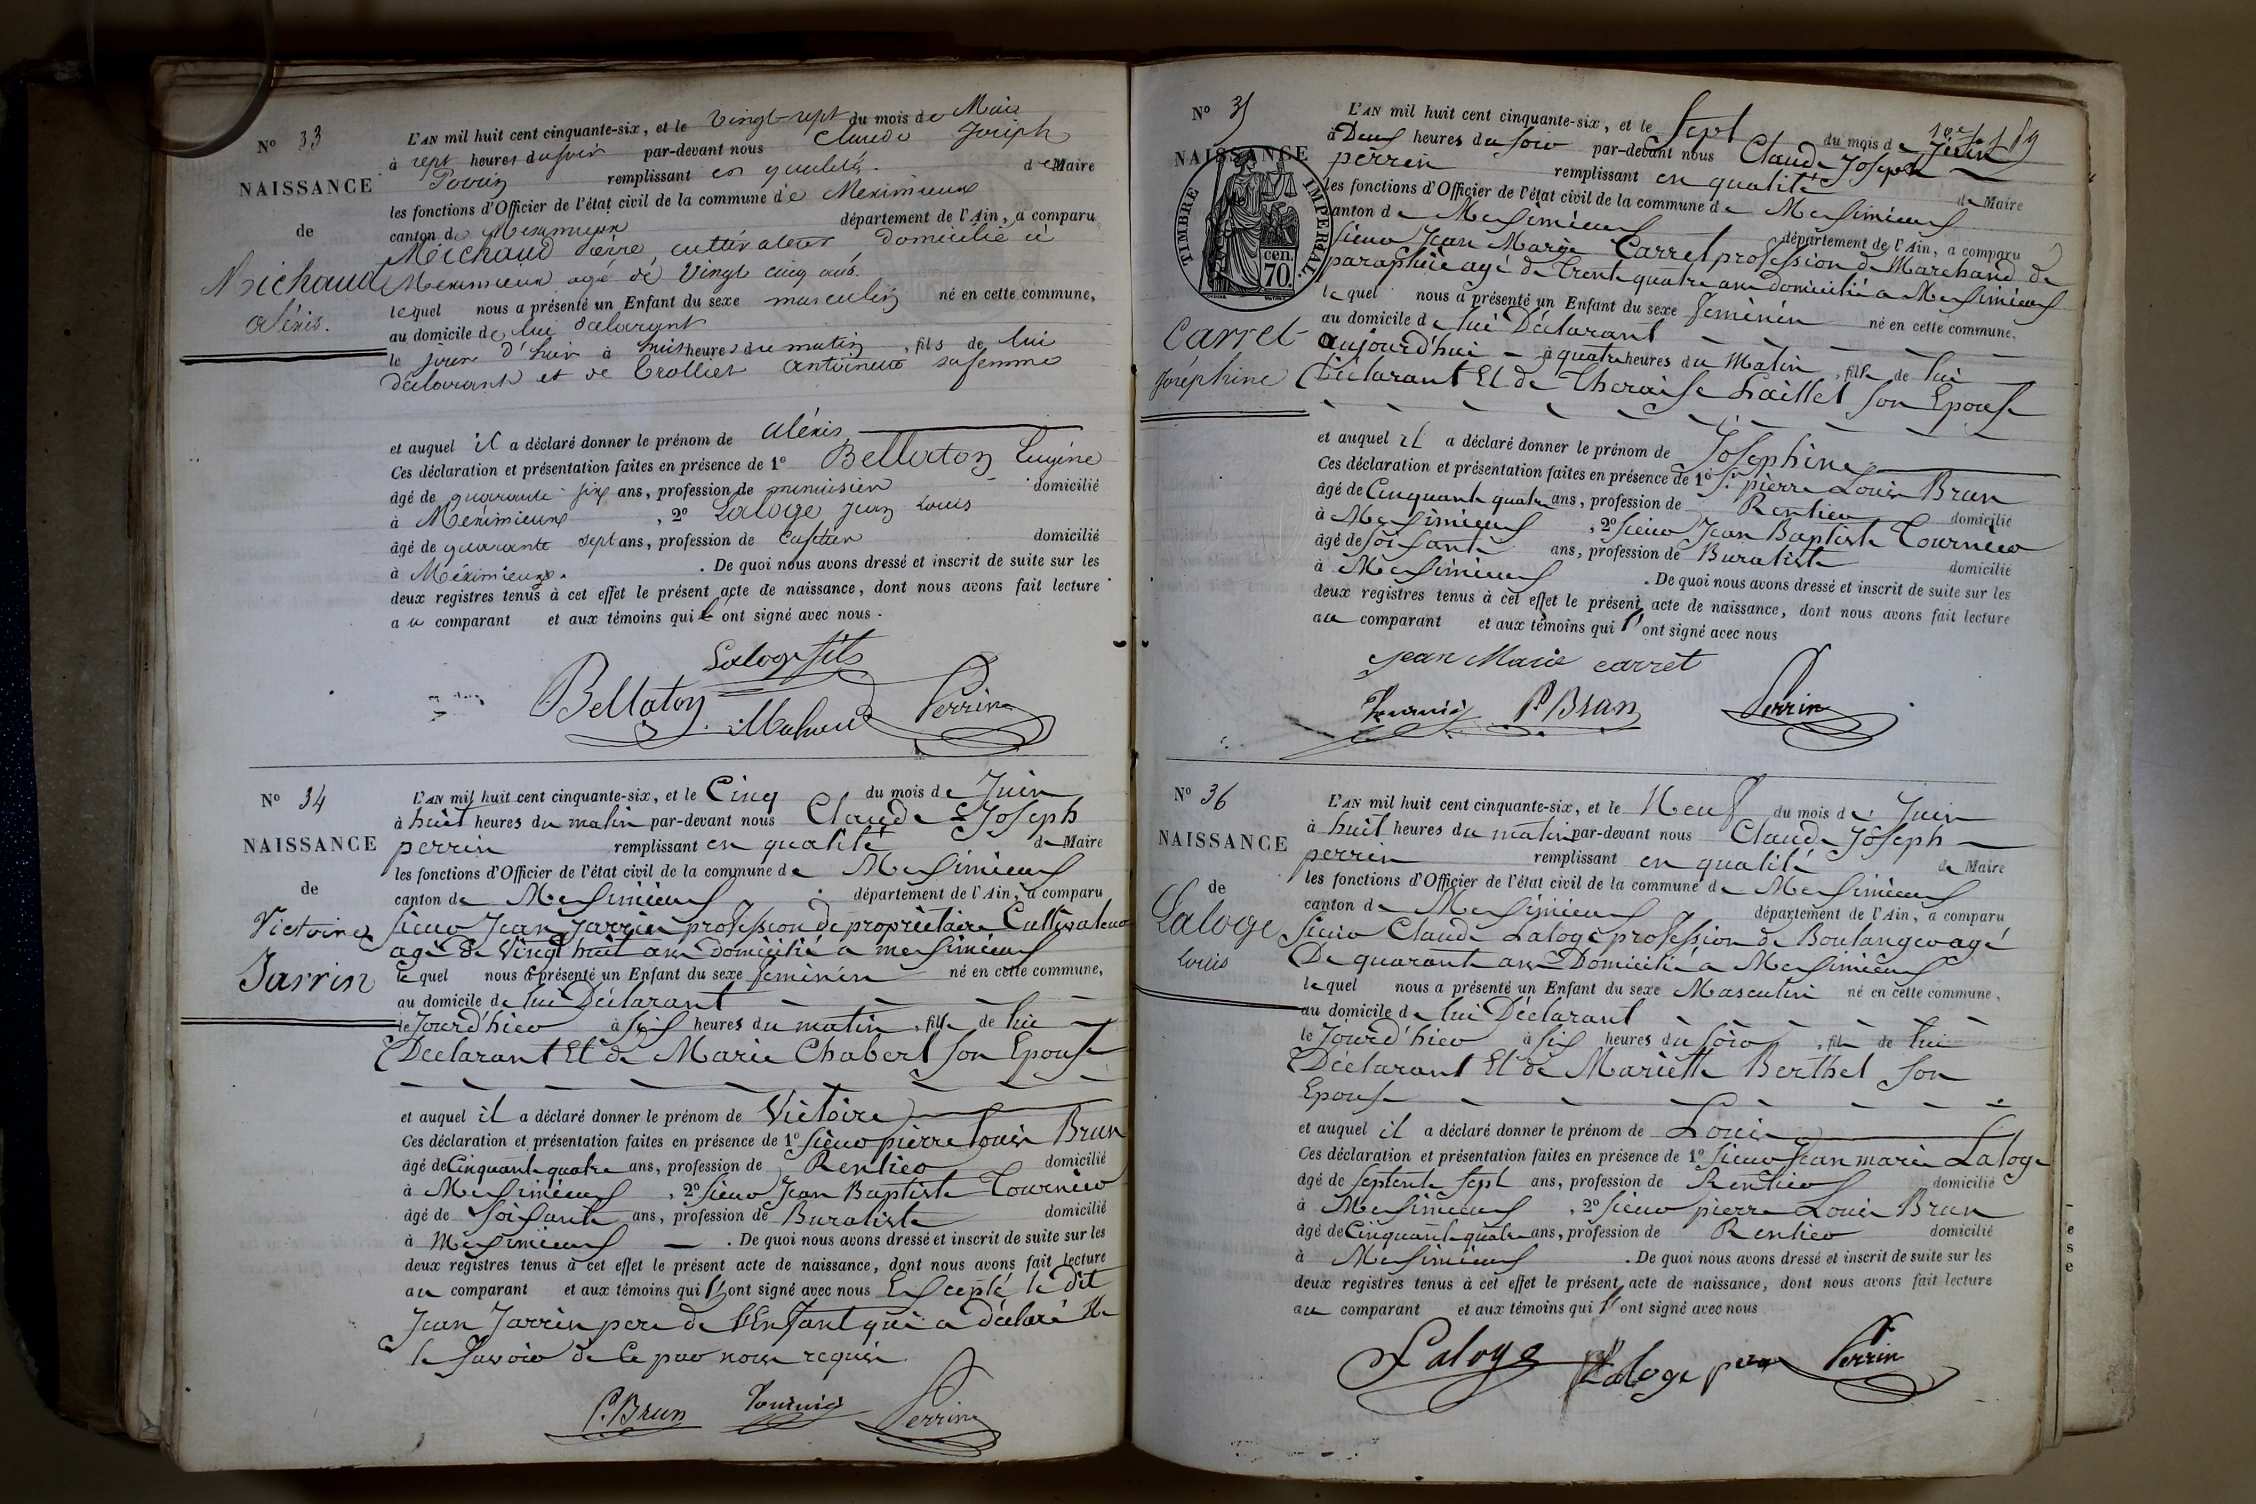 N° 33
NAISSANCE
de
Michaud
Aléxis.
L'AN mil huit cent cinquante-six, et le vingt-sept du mois de Mai
à sept heures du soir par-devant nous Claude Joseph
Perrin remplissant en qualité de Maire
les fonctions d'Officier de l'état civil de la commune de Meximieux
canton de Meximieux département de l'Ain, a comparu
Michaud Pierre, cultivateur domicilié à
Meximieux agé de vingt cinq ans.
lequel nous a présenté un Enfant du sexe masculin né en cette commune,
au domicile de lui déclarant
le jour d'hier à huit heures du matin, fils de lui
déclarant et de Trollier Antoinette sa femme
et auquel il a déclaré donner le prénom de Aléxis
Ces déclaration et présentation faites en présence de 1° Bellaton Eugène
âgé de quarante six ans, profession de menuisier domicilié
à Méximieux, 2° Laloge Jean Louis
âgé de quarante sept ans, profession de domicilié
à Méximieux. De quoi nous avons dressé et inscrit de suite sur les
deux registres tenus à cet effet le présent acte de naissance, dont nous avons fait lecture
au comparant et aux témoins qui l'ont signé avec nous.
Laloge fils
Bellaton Michaud Perrin
N° 34
NAISSANCE
de
Victoire
Jarrin
L'AN mil huit cent cinquante-six, et le Cinq du mois de Juin
à huit heures du matin par-devant nous Claude Joseph
perrin remplissant en qualité de Maire
les fonctions d'Officier de l'état civil de la commune de Meximieux
canton de Meximieux département de l'Ain, a comparu
sieur Jean Jarrin profession de propriétaire Cultivateur
agé de vingt huit ans domicilié a meximieux
le quel nous a présenté un Enfant du sexe feminin né en cette commune,
au domicile de lui Déclarant
le Jourd'hier à six heures du matin, fille de lui
Déclarant Et de Marie Chabert son Epouse
et auquel il a déclaré donner le prénom de Victoire
Ces déclaration et présentation faites en présence de 1° sieur pierre Louis Brun
âgé de Cinquante quatre ans, profession de Rentier domicilié
à Meximieux, 2° sieur Jean Baptiste Tournier
âgé de soixante ans, profession de Buraliste domicilié
à Meximieux. De quoi nous avons dressé et inscrit de suite sur les
deux registres tenus à cet effet le présent acte de naissance, dont nous avons fait lecture
au comparant et aux témoins qui l'ont signé avec nous Excepté le dit
Jean Jarrin pere de l'Enfant qui a déclaré Ne
le savoir de Ce par nous requis
P. Brun Tournier Perrin
N° 35
NAISSANCE
TIMBRE IMPERIAL.
cen.
70.
Carret
Joséphine
L'AN mil huit cent cinquante-six, et le Sept du mois de Juin
à Deux heures du soir par-devant nous Claude Joseph
perrin remplissant en qualité de Maire
les fonctions d'Officier de l'état civil de la commune de Meximieux
canton de Meximieux département de l'Ain, a comparu
sieur Jean Marie Carret profession de Marchand de
paraphuie agé de trente quatre ans domicilié a Meximieux
le quel nous a présenté un Enfant du sexe feminin né en cette commune,
au domicile de lui Déclarant
aujourd'hui à quatre heures du Matin, fille de lui
Déclarant Et de Theraise Laillet son Epouse
et auquel il a déclaré donner le prénom de Josephine
Ces déclaration et présentation faites en présence de 1° Sr. pierre Louis Brun
âgé de Cinquante quatre ans, profession de Rentier domicilié
à Meximieux, 2° sieur Jean Baptiste Tournier
âgé de soixante ans, profession de Buraliste domicilié
à Meximieux. De quoi nous avons dressé et inscrit de suite sur les
deux registres tenus à cet effet le présent acte de naissance, dont nous avons fait lecture
au comparant et aux témoins qui l'ont signé avec nous
Jean Marie carret
Tournier P. Brun Perrin
N° 36
NAISSANCE
de
Laloge
Louis
L'AN mil huit cent cinquante-six, et le Neuf du mois de Juin
à huit heures du matin par-devant nous Claude Joseph
perrin remplissant en qualité de Maire
les fonctions d'Officier de l'état civil de la commune de Meximieux
canton de Meximieux département de l'Ain, a comparu
sieur Claude Laloge profession de Boulanger agé
De quarante ans Domicilié a Meximieux
le quel nous a présenté un Enfant du sexe Masculin né en cette commune,
au domicile de lui Déclarant
le Jourd'hier à six heures du soir, fils de lui
Déclarant Et de Mariette Berthet son
Epouse
et auquel il a déclaré donner le prénom de Louis
Ces déclaration et présentation faites en présence de 1° sieur Jean marie Laloge
âgé de septente sept ans, profession de Rentier domicilié
à Meximieux, 2° sieur pierre Louis Brun
âgé de Cinquante quatre ans, profession de Rentier domicilié
à Meximieux. De quoi nous avons dressé et inscrit de suite sur les
deux registres tenus à cet effet le présent acte de naissance, dont nous avons fait lecture
au comparant et aux témoins qui l'ont signé avec nous
Laloge Laloge pere Perrin